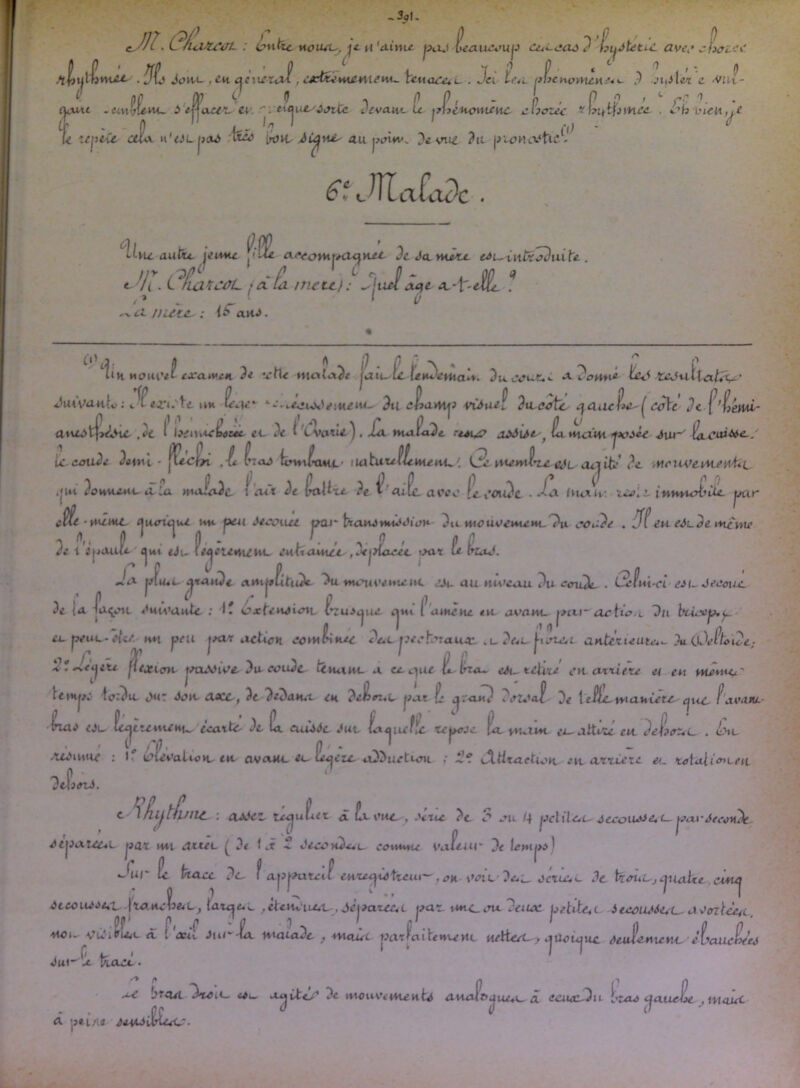 - 391 -
M. Charcot : Contre nous, je n'aime pas beaucoup ces cas d'hystérie avec chorée
rhythmée. Ils sont, en général, extrêmement tenaces. Ici les phénomènes d'hystérie vul-
gaire semblent s'effacer en quelque sorte devant le phénomène chorée rhythmée. Eh bien, je
le répète cela n'est pas très bon signe au point de vue du pronostic (1).
6e Malade.
Une autre jeune fille accompagnée de sa mère est introduite.
M. Charcot (à la mère) : Quel âge a-t-elle ?
La mère : 15 ans.
(1) Un nouvel examen de cette malade fait le lendemain du cours a donné les résultats
suivants : Il existe un léger rétrécissement du champ visuel du côté gauche (côté de l'hémi-
anesthésie, de l'hémichorée et de l'ovarie). La malade reste assise, la main posée sur la cuisse,
le coude demi-fléchi, le bras tombant naturellement. Ce membre est agité de mouvements
qui donnent à la malade l'air de battre de l'aile avec le coude. La main reste immobile par
elle-même quoique un peu secouée par transmission du mouvement du coude. Il en est de même
de l'épaule qui est légèrement entraînée, déplacée par le bras.
La plus grande amplitude du mouvement est au niveau du coude. Celui-ci est secoué
de la façon suivante : 1° Extension brusque qui l'amène en avant par action du triceps,
et peut-être un peu par action combinée des pectoraux et des fibres antérieures du deltoïde;
2° Légère flexion passive du coude tenant à ce que le bras est retiré en arrière et en même
temps tordu sur son axe, de dedans en dehors par le grand dorsal de telle manière que l'avant-
bras est légèrement écarté de la cuisse sur laquelle repose la main et attiré en dehors. En
résumé : 1° Élévation en avant et légère adduction ; 2° Attraction en arrière et rotation en
dehors.
Rhythme : assez régulier à la vue, série de 3 ou 4 petites secousses par seconde
séparées par un arrêt (de 1 à 2 secondes comme valeur de temps)
Sur le tracé de l'appareil enregistreur, on voit des séries de trois, quatre, cinq
secousses franches, larges, étendues, séparées par une ou deux petites secousses avortées,
non visibles à l'œil sur la malade, mais parfaitement nettes, quoique seulement ébauchées
sur le tracé.
Le bras droit est agité de mouvements analogues à ceux du bras gauche, mais
à peine sensibles.